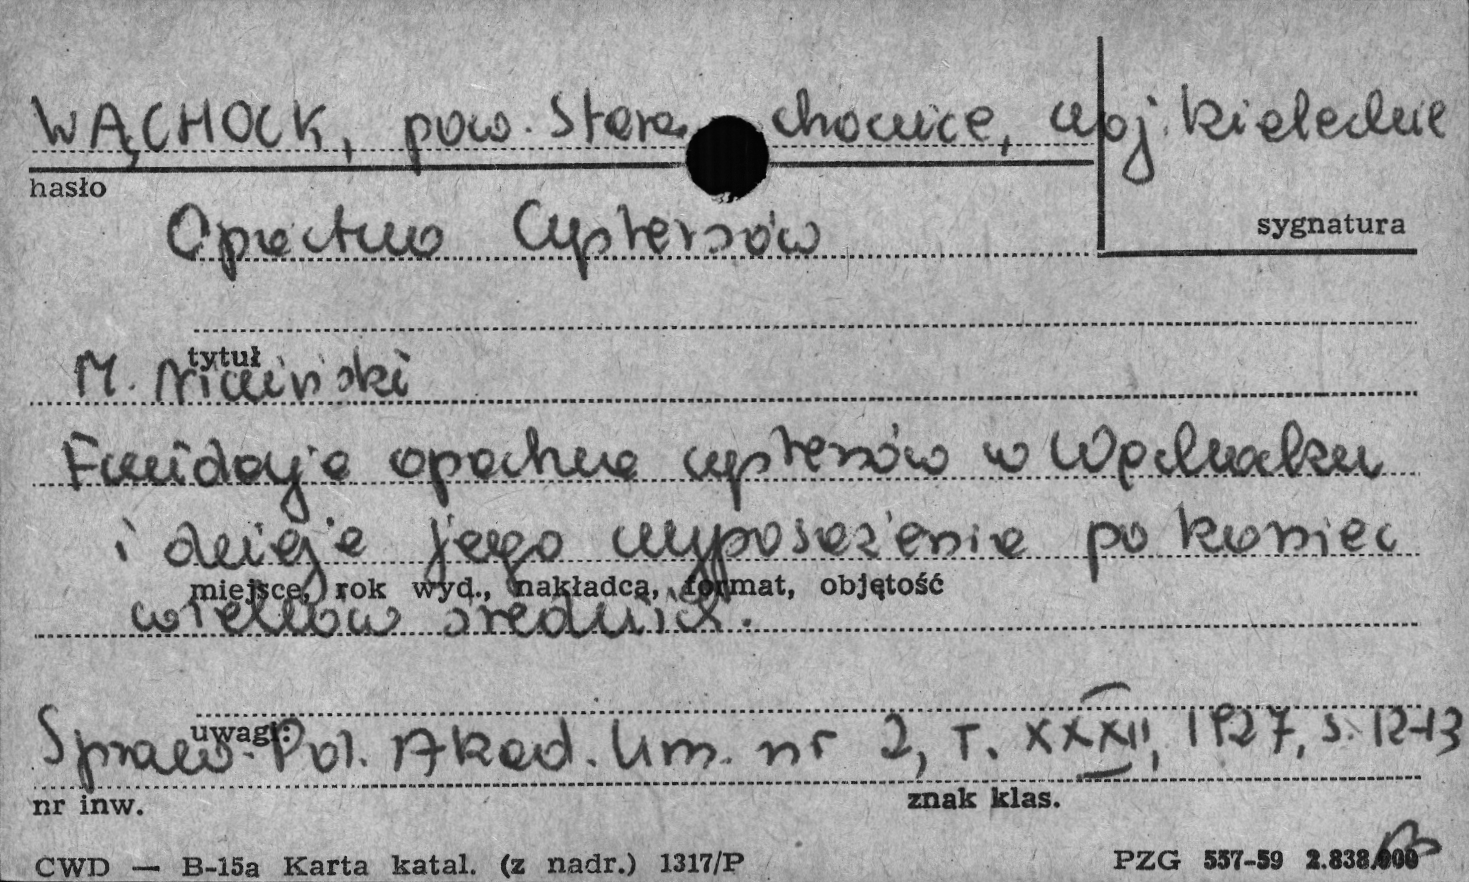 WĄCHOCK, pow. Stara chowice, woj. kieleckie
hasło
Opactwo Cystersów
sygnatura
tytuł
M. Niwiński
Fundacja opactwa cystersów w Wąchocku
i dzieje jego wyposażenia po koniec
miejsce, rok wyd., nakładca, format, objętość
wieków średnich.
uwagi:
Spraw. Pol. Akad. Um. nr 2, T. XXXII, 1927, s. 12-13
nr inw.
znak klas.
CWD — B-15a Karta katal. (z nadr.) 1317/P
PZG 557-59 2.838.000